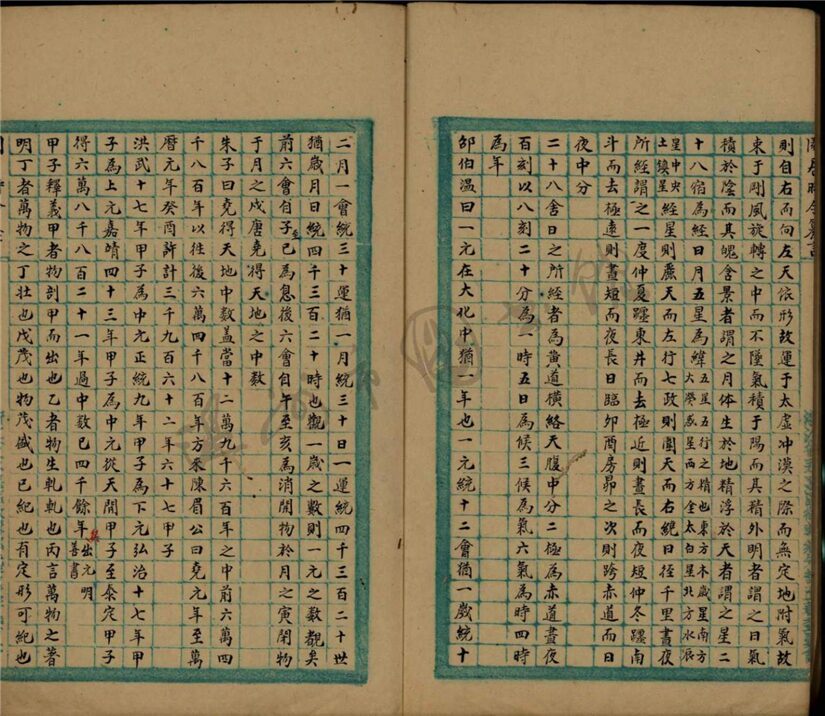 則自右而向左天依形故運于太虛冲漠之際而無定地附氣故
束于剛風旋轉之中而不墜氣積于陽而其精外明者謂之日氣
積於陰而其魄含景者謂之月体生於地精浮於天者謂之星二
十八宿為經日月五星為緯五星五行之精也東方木歲星南方火熒惑星西方金太白星北方水辰
星中央土鎮星經星則麗天而左行七政則圍天而右繞日徑千里晝夜
所經謂之一度仲夏躔東井而去極近則晝長而夜短仲冬躔南
斗而去極遠則晝短而夜長日臨卯酉房昴之次則跨赤道而日
夜中分
二十八舍日之所經者為黃道橫絡天腹中分二極為赤道晝夜
百刻以八刻二十分為一時五日為候三候為氣六氣為時四時
為年
邵伯温曰一元在大化中猶一年也一元統十二會猶一歲統十
二月一會統三十運猶一月統三十日一運統四千三百二十世
猶歲月日統四千三百二十時也觀一歲之數則一元之數覩矣
前六會自子至巳為息後六會自午至亥為消開物於月之寅閉物
于月之戌唐堯得天地之中数
朱子曰堯得天地中数盖當十二萬九千六百年之中前六萬四
千八百年以往後六萬四千八百年方來陳眉公曰堯元年至萬
曆元年癸酉許計三千九百六十二年六十七甲子
洪武十七年甲子為中元正統九年甲子為下元弘治十七年甲
子為上元嘉靖四十三年甲子為中元從天開甲子至泰定甲子
得六萬八千八百二十一年過中数已四千餘年矣出元明善書
甲子釋義甲者物剖甲而出也乙者物生軋軋也丙言萬物之著
明丁者萬物之丁壯也戊茂也物茂盛也己紀也有定形可紀也